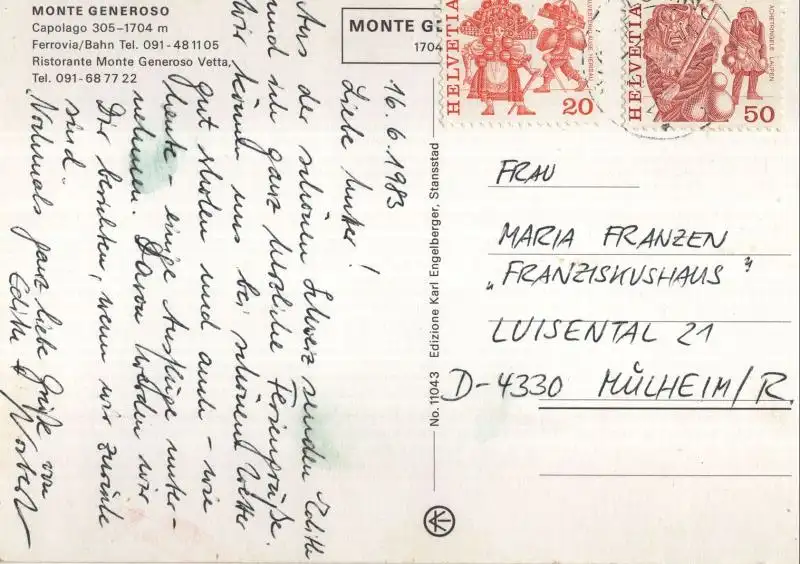 MONTE GENEROSO
Capolago 305–1704 m
Ferrovia/Bahn Tel. 091-48 11 05
Ristorante Monte Generoso Vetta,
Tel. 091-68 77 22
MONTE GE
1704
HELVETIA
20
HELVETIA
ACHETRINGELE LAUPEN
50
16.6.1983
Liebe Mutter!
Aus der schönen Schweiz senden Edith
und ich ganz herzliche Feriengrüße.
Wir können uns bei schönem Wetter
gut erholen und auch - wie
heute - einige Ausflüge unter-
nehmen. Davon werden wir
Dir berichten, wenn wir zurück
sind.
Nochmals ganz liebe Grüße von
Edith + Norbert
No. 11043 Edizione Karl Engelberger, Stansstad
FRAU
MARIA FRANZEN
„FRANZISKUSHAUS"
LUISENTAL 21
D-4330 MÜLHEIM/R.